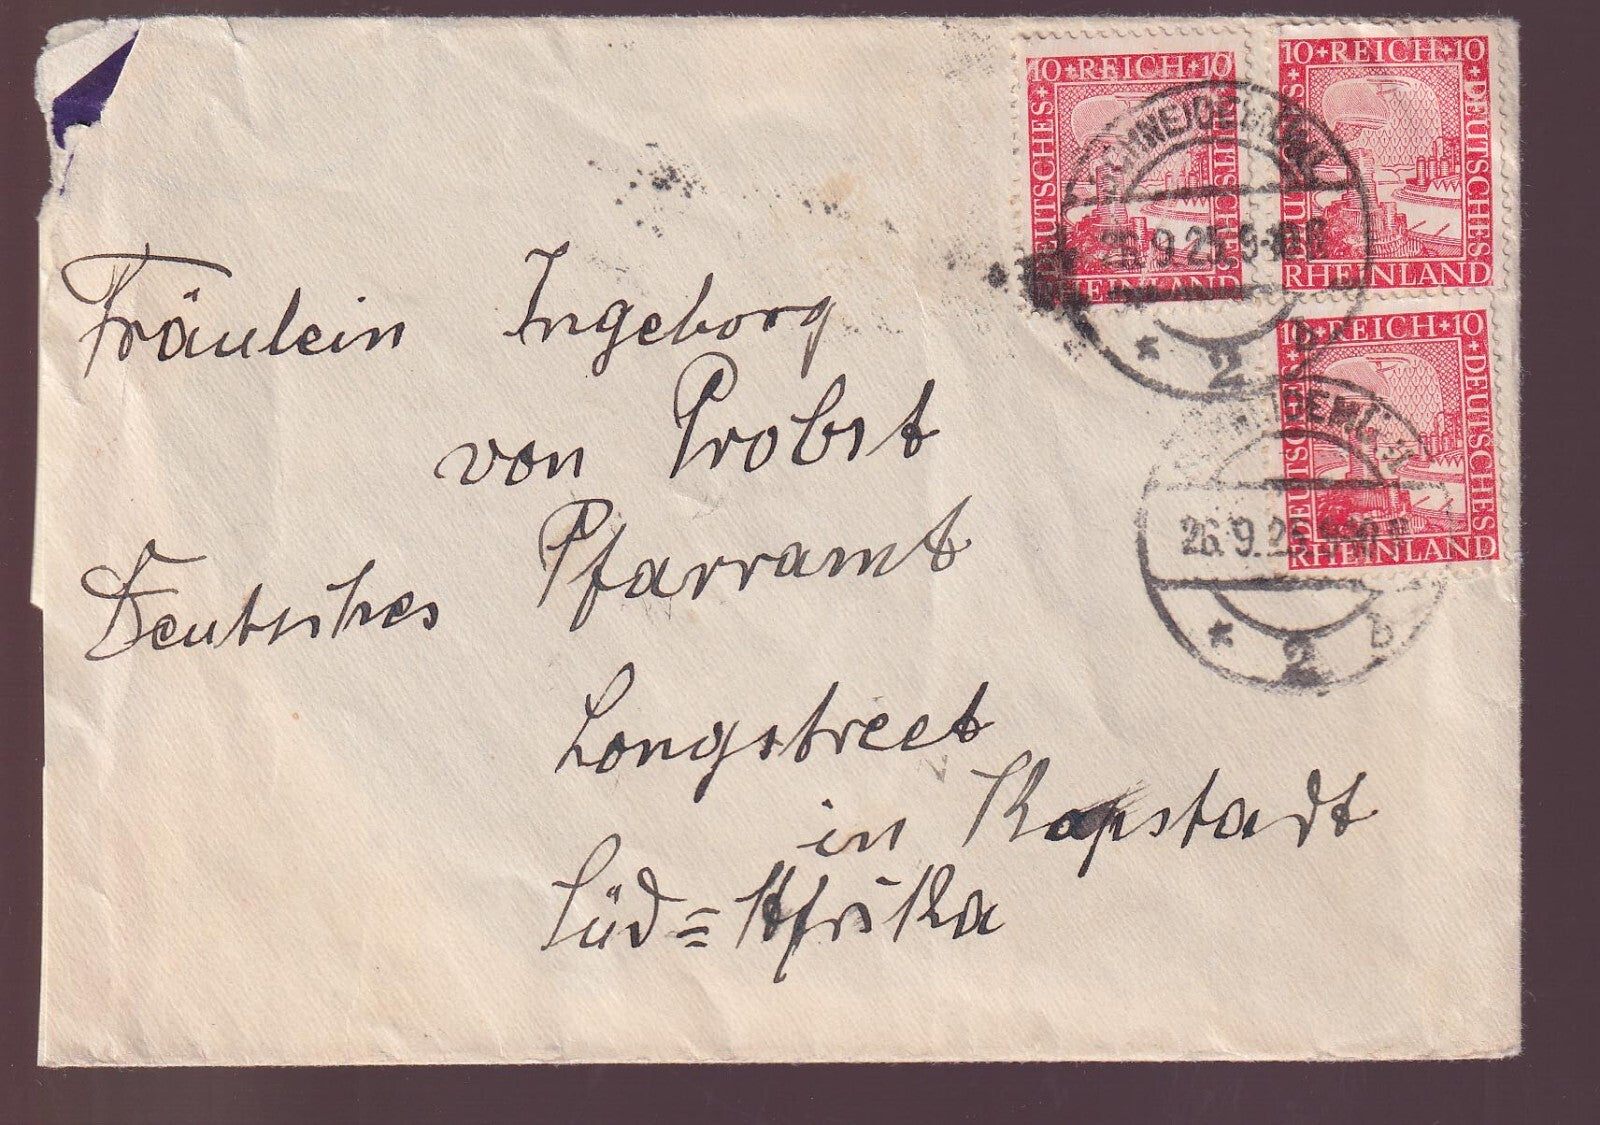 Fräulein Ingeborg
von Probst
Deutsches Pfarramt
Longstreet
in Kapstadt
Süd=Afrika
10 REICH 10
DEUTSCHES
DEUTSCHES
RHEINLAND
10 REICH 10
DEUTSCHES
DEUTSCHES
RHEINLAND
10 REICH 10
DEUTSCHES
DEUTSCHES
RHEINLAND
SCHNEIDEMÜHL
26.9.25.9-10
* 2 b
SCHNEIDEMÜHL
26.9.25.9-10
* 2 b